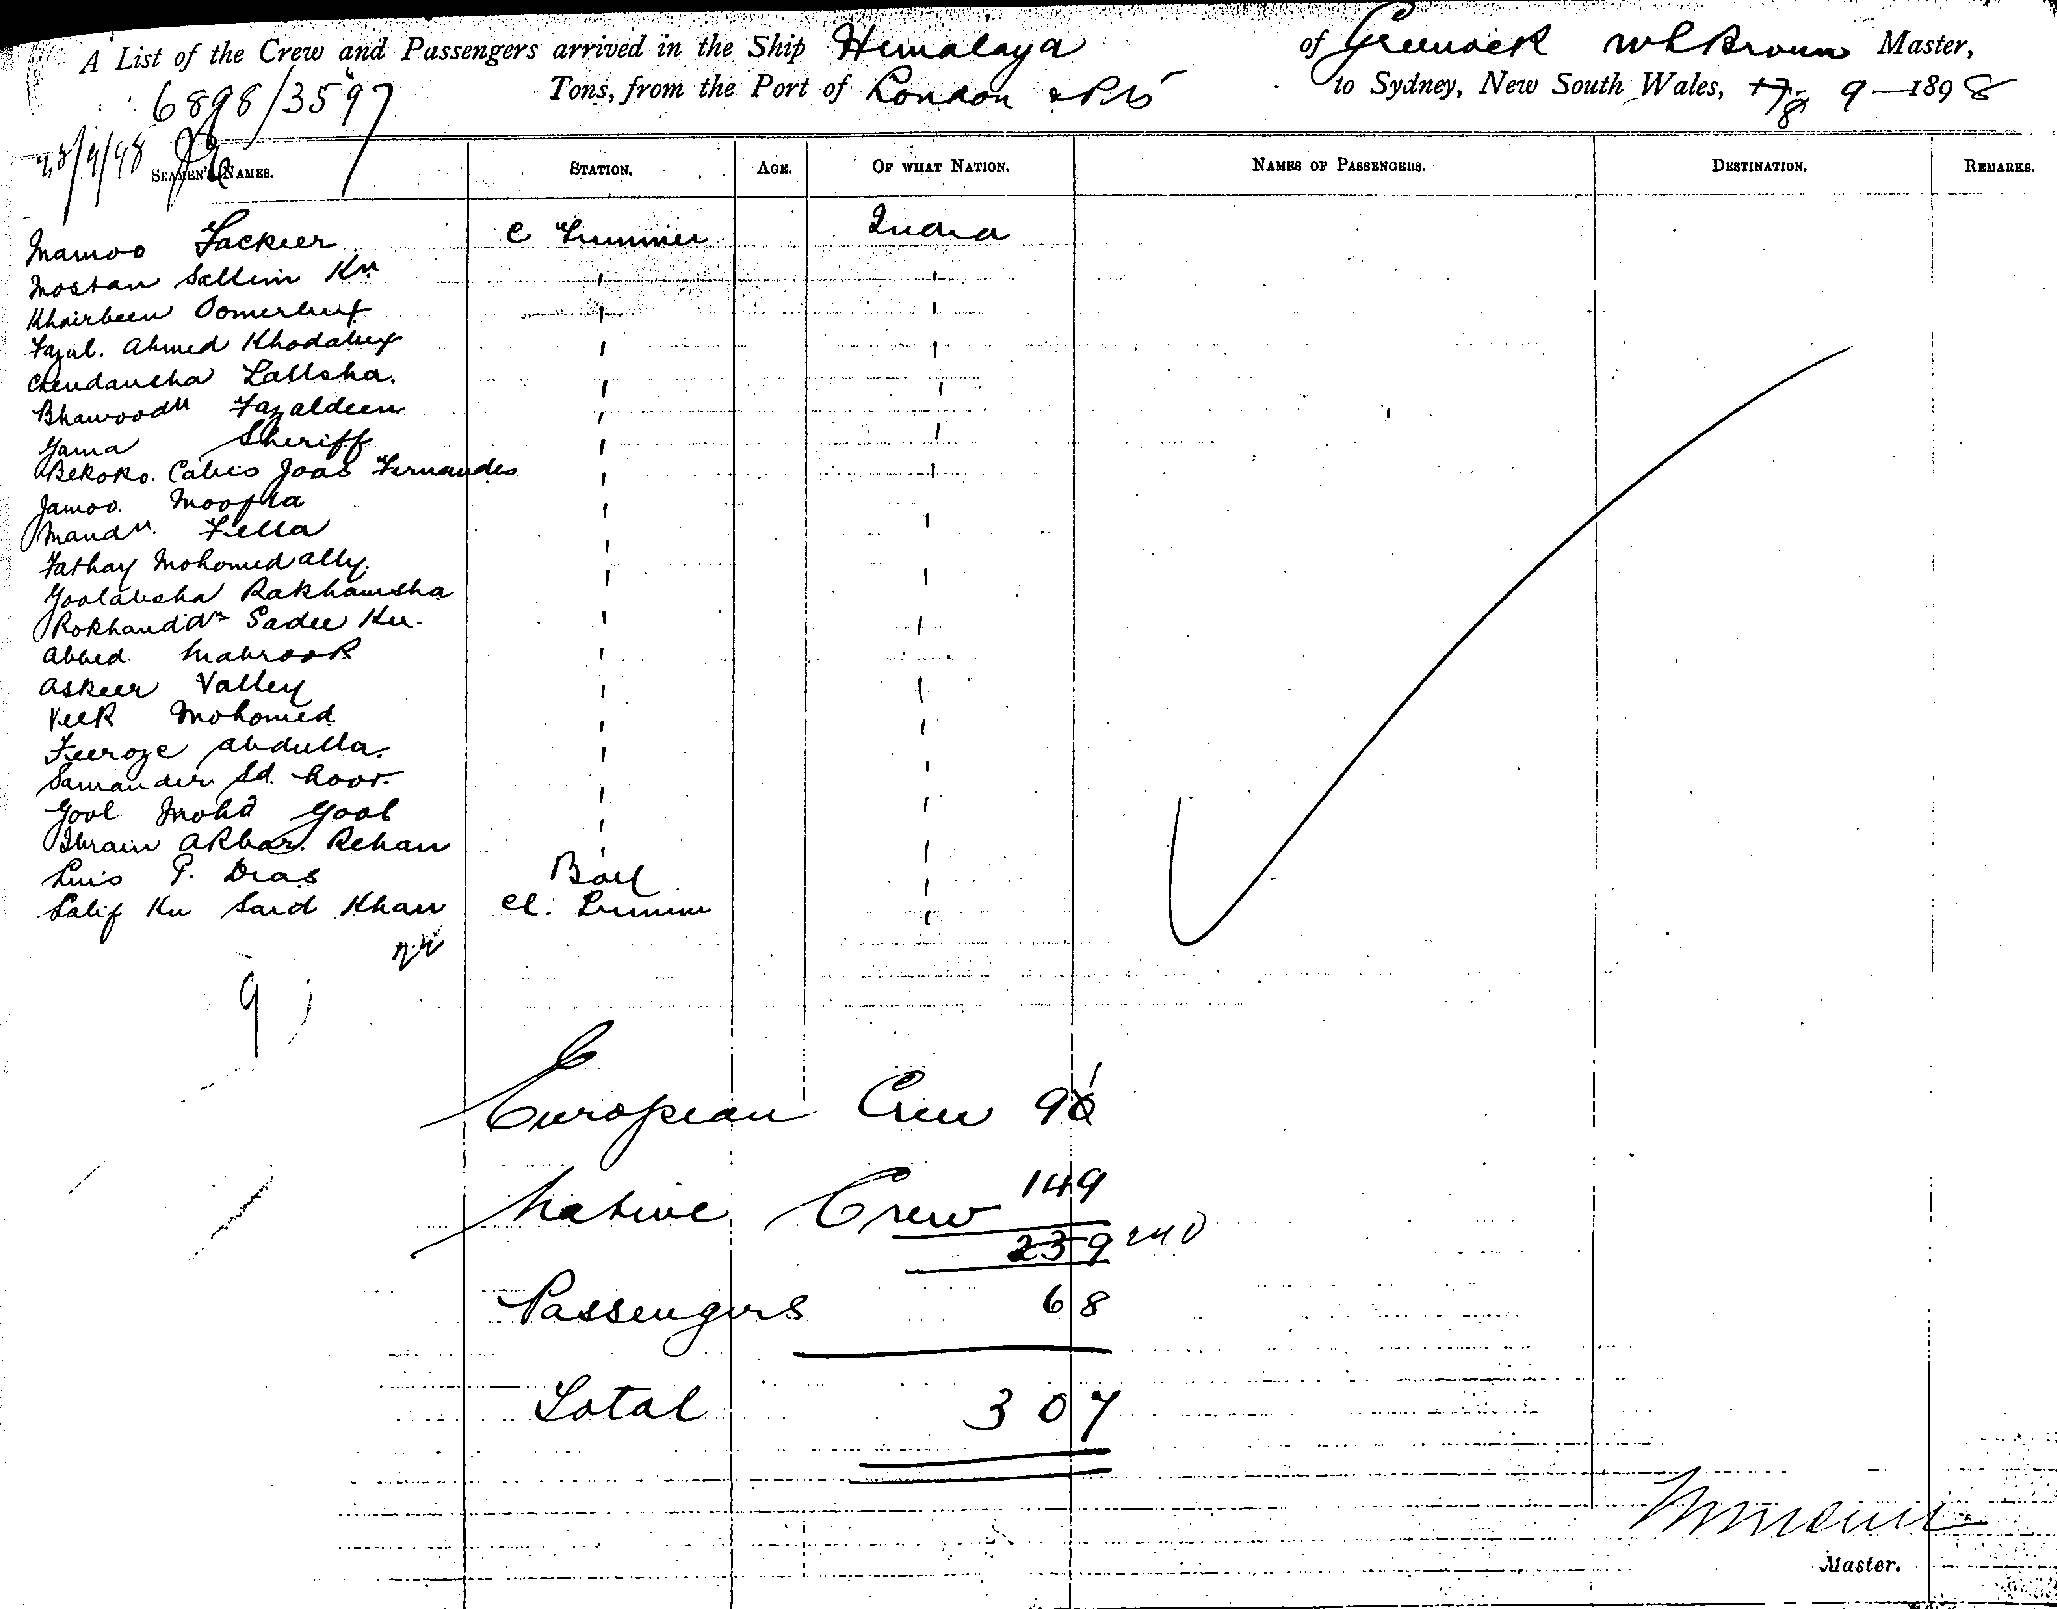 A List of the Crew and Passengers arrived in the Ship Himalaya of Greenock W L Broun Master,
6898/3597 Tons, from the Port of London & Pts to Sydney, New South Wales, 9 — 1898
SEAMEN'S NAMES. STATION. AGE. OF WHAT NATION. NAMES OF PASSENGERS. DESTINATION. REMARKS.
Mamoo Fackeer C Trimmer India
Mostan Sellim Kn
Khairbeen Oomerbux
Fazul. Ahmed Khodabux
Lallsha.
Fazaldeen
Gama Sheriff
Joao Fernandes
Jamoo. Moofta
Fella
Fathay Mohomedally.
Goolabsha Rakhamsha
Sadee Kn.
Abbed Mabrook
Askeer Valley
Veer Mohomed
Feeroze Abdulla.
Samander Sd. Noor.
Gool Mohd Gool
Ibraim Akbar. Rehan
Luis P. Dias Boy
Latif Kn Said Khan Cl. Trimmer
9
European Crew 91
Native Crew 149
239 240
Passengers 68
Total 307
Master.